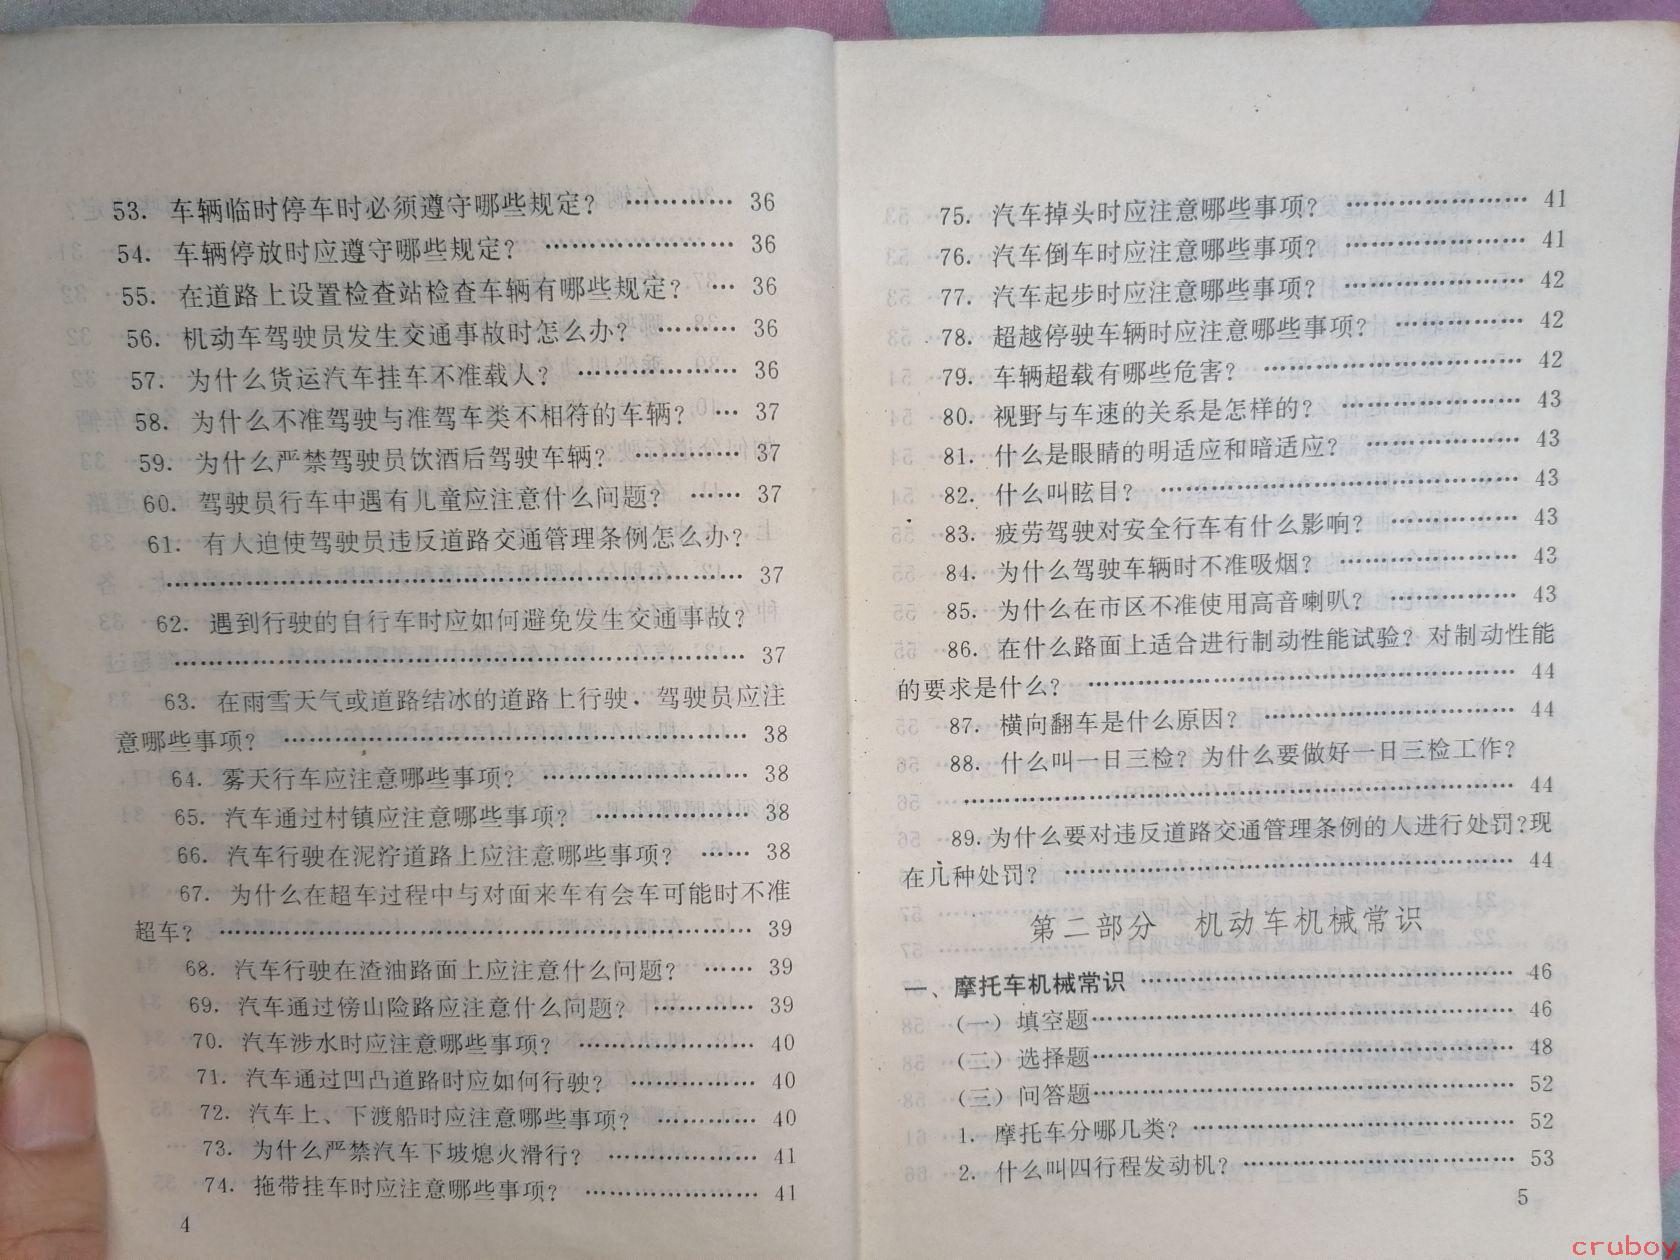 53. 车辆临时停车时必须遵守哪些规定? ………… 36
54. 车辆停放时应遵守哪些规定? ………………… 36
55. 在道路上设置检查站检查车辆有哪些规定? … 36
56. 机动车驾驶员发生交通事故时怎么办? ……… 36
57. 为什么货运汽车挂车不准载人? ……………… 36
58. 为什么不准驾驶与准驾车类不相符的车辆? … 37
59. 为什么严禁驾驶员饮酒后驾驶车辆? ………… 37
60. 驾驶员行车中遇有儿童应注意什么问题? …… 37
61. 有人迫使驾驶员违反道路交通管理条例怎么办?
………………………………………………………… 37
62. 遇到行驶的自行车时应如何避免发生交通事故?
………………………………………………………… 37
63. 在雨雪天气或道路结冰的道路上行驶,驾驶员应注
意哪些事项? …………………………………………… 38
64. 雾天行车应注意哪些事项? …………………… 38
65. 汽车通过村镇应注意哪些事项? ……………… 38
66. 汽车行驶在泥泞道路上应注意哪些事项? …… 38
67. 为什么在超车过程中与对面来车有会车可能时不准
超车? …………………………………………………… 39
68. 汽车行驶在渣油路面上应注意什么问题? …… 39
69. 汽车通过傍山险路应注意什么问题? ………… 39
70. 汽车涉水时应注意哪些事项? ………………… 40
71. 汽车通过凹凸道路时应如何行驶? …………… 40
72. 汽车上、下渡船时应注意哪些事项? ………… 40
73. 为什么严禁汽车下坡熄火滑行? ……………… 41
74. 拖带挂车时应注意哪些事项? ………………… 41
4
75. 汽车掉头时应注意哪些事项? ………………… 41
76. 汽车倒车时应注意哪些事项? ………………… 41
77. 汽车起步时应注意哪些事项? ………………… 42
78. 超越停驶车辆时应注意哪些事项? …………… 42
79. 车辆超载有哪些危害? ………………………… 42
80. 视野与车速的关系是怎样的? ………………… 43
81. 什么是眼睛的明适应和暗适应? ……………… 43
82. 什么叫眩目? …………………………………… 43
83. 疲劳驾驶对安全行车有什么影响? …………… 43
84. 为什么驾驶车辆时不准吸烟? ………………… 43
85. 为什么在市区不准使用高音喇叭? …………… 43
86. 在什么路面上适合进行制动性能试验? 对制动性能
的要求是什么? ………………………………………… 44
87. 横向翻车是什么原因? ………………………… 44
88. 什么叫一日三检? 为什么要做好一日三检工作?
………………………………………………………… 44
89.为什么要对违反道路交通管理条例的人进行处罚?现
在几种处罚? …………………………………………… 44
第二部分 机动车机械常识
一、摩托车机械常识 …………………………………… 46
(一) 填空题………………………………………… 46
(二) 选择题………………………………………… 48
(三) 问答题………………………………………… 52
1. 摩托车分哪几类? ……………………………… 52
2. 什么叫四行程发动机? ………………………… 53
5
cruboy